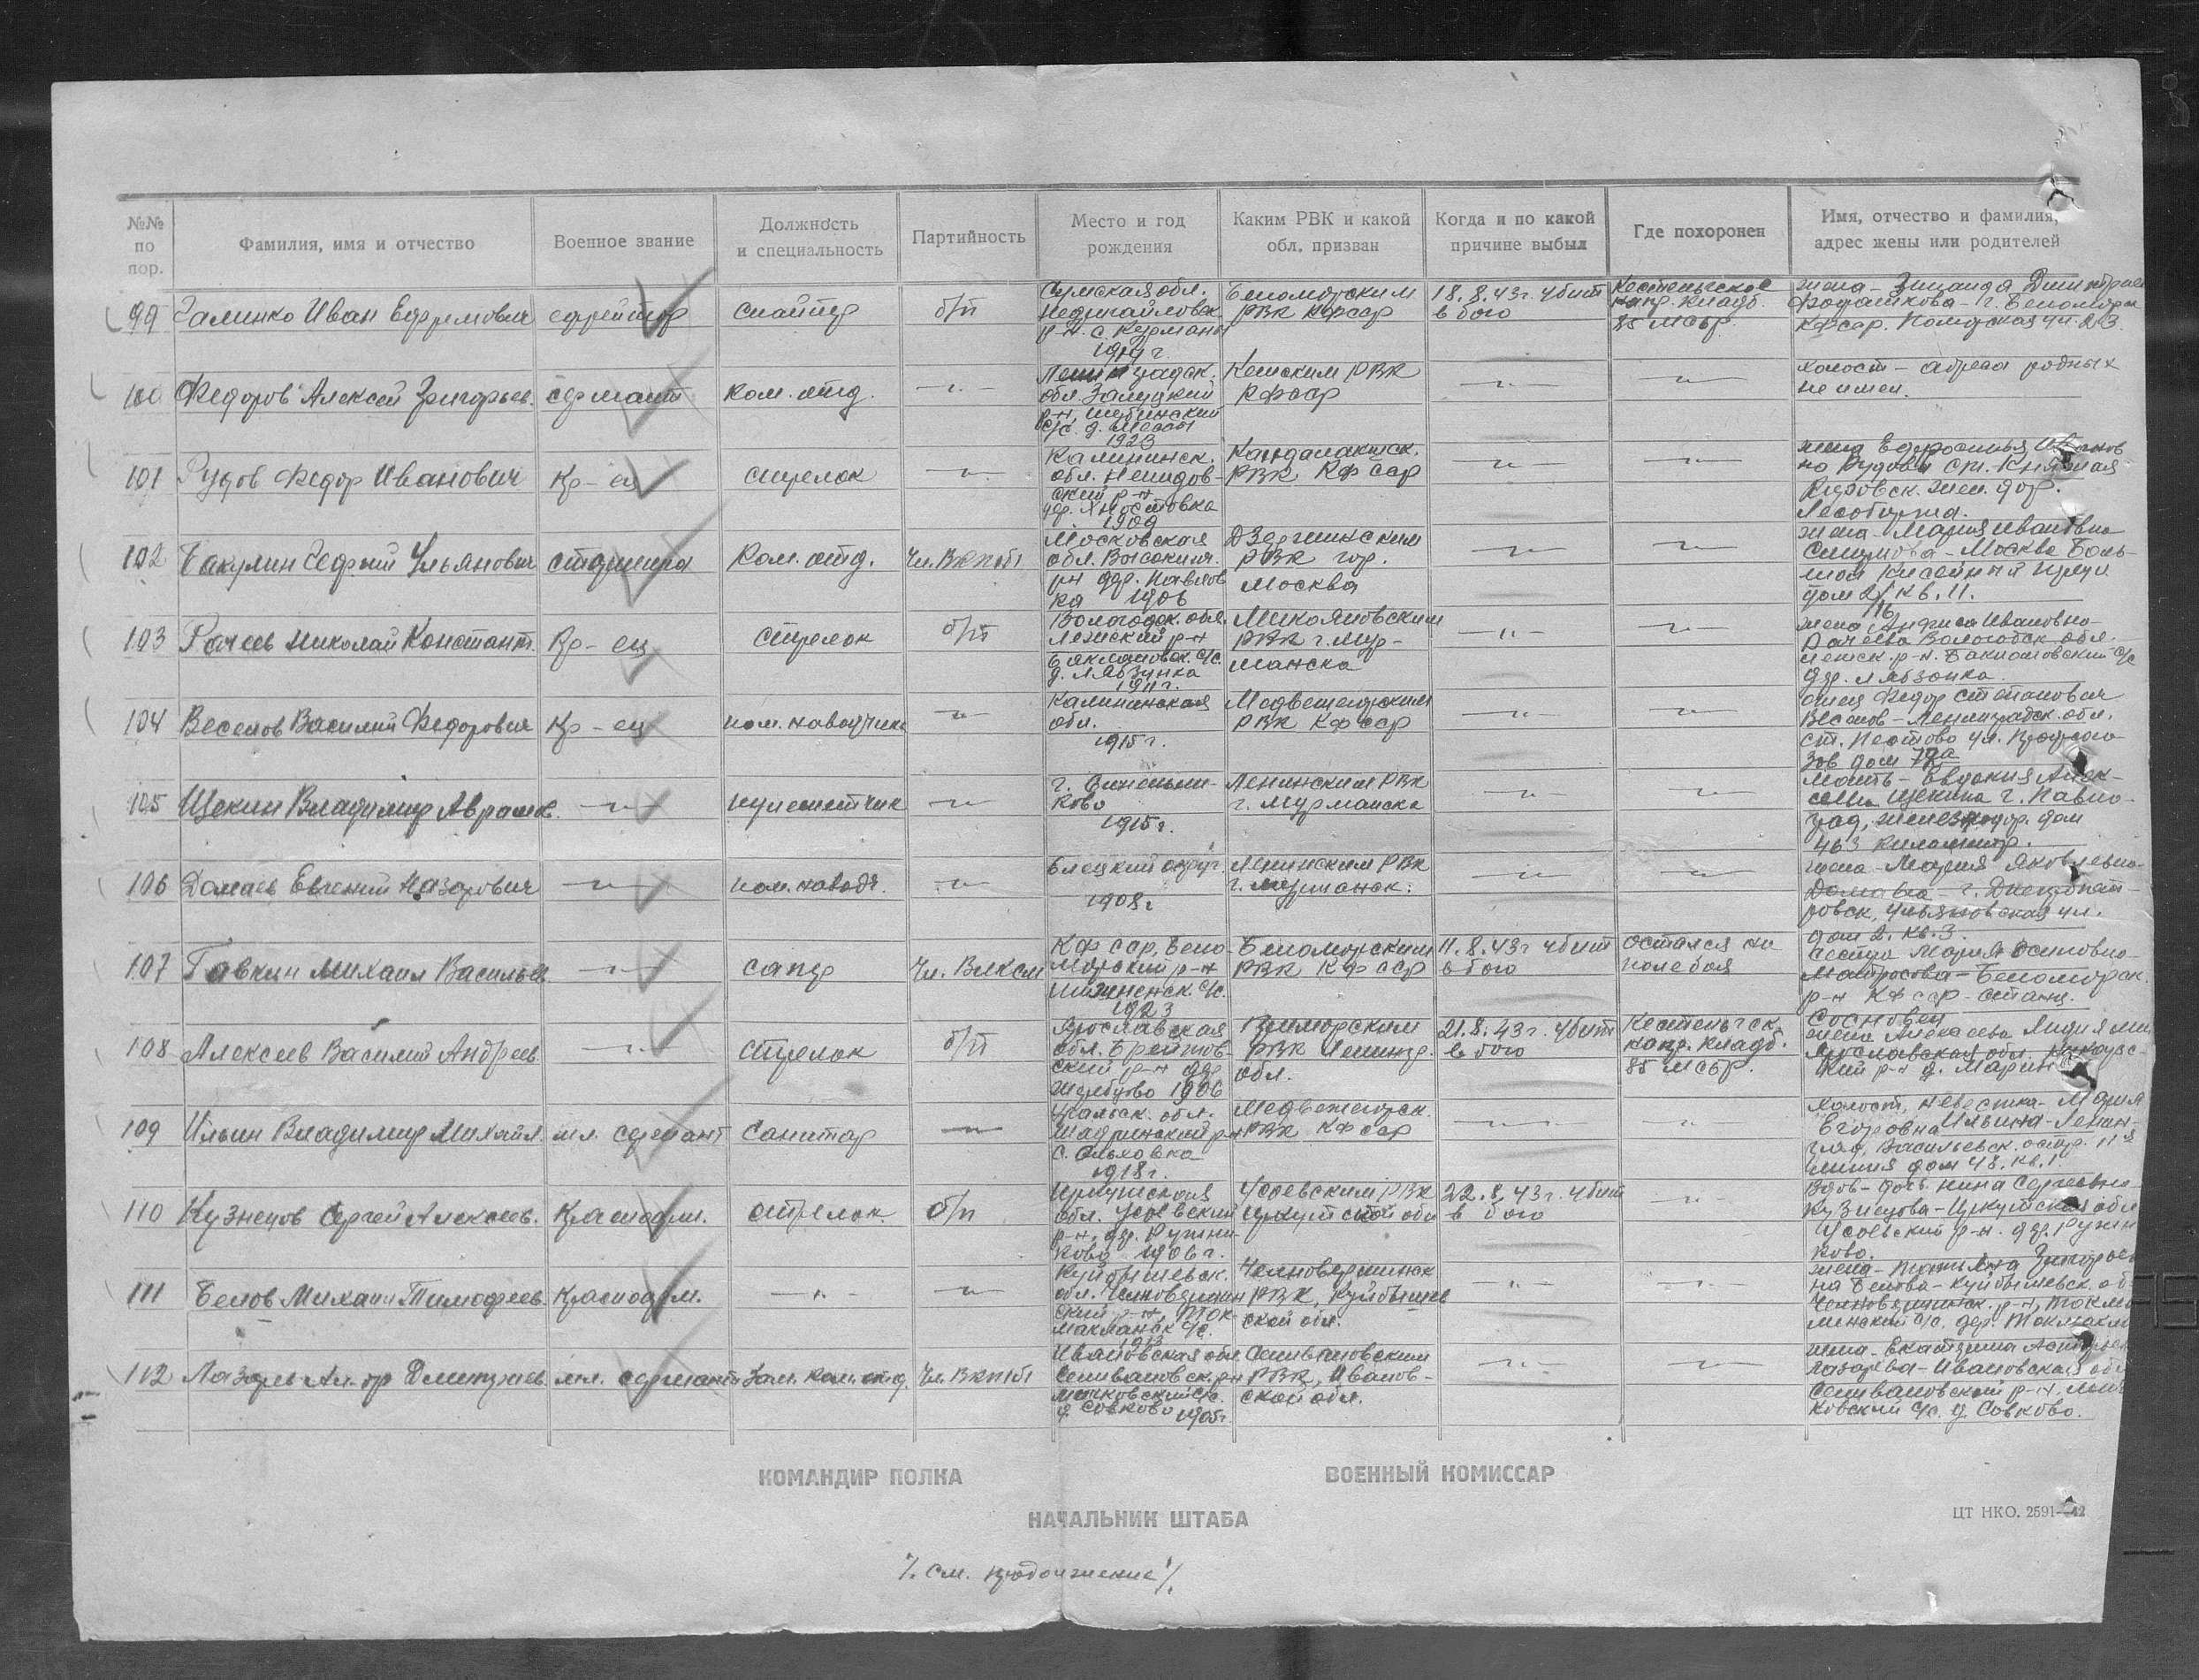 №№ по пор.
Фамилия, имя и отчество
Военное звание
Должность и специальность
Партийность
Место и год рождения
Каким РВК и какой обл. призван
Когда и по какой причине выбыл
Где похоронен
Имя, отчество и фамилия, адрес жены или родителей
99 Галинко Иван Ефремович ефрейтор снайпер б/п
Сумская обл.
Недригайловск.
р-н. с. Курманы
1914 г.
Беломорским
РВК КФССР
18.8.43г. убит
в бою
Кестеньгское
напр. кладб.
85 МСБР.
жена - Зинаида Дмитриев
г. Беломорск
КФССР. ул. 23.
100 Федоров Алексей Григорьев. сержант Ком. отд. —"—
Ленинградск.
обл.
р-н,
с/с. д.
1923
Кемским РВК
КФССР
—"— —"—
холост - адреса родных
не имел.
101 Рудов Федор Иванович Кр-ец стрелок —"—
Калининск.
обл. Нелидов-
ский р-н
дер.
1909
Кандалакшск.
РВК КФССР
—"— —"—
жена Ефросинья Иванов
на Рудова ст. Княжая
Кировск. жел. дор.
Лесобиржа.
102 Бакулин Сергей Ульянович старшина Ком. отд. Чл. ВКП(б)
Московская
обл. Высокинич.
рн дер. Павлов
ка 1906
Дзержинским
РВК гор.
Москва
—"— —"—
жена - Мария Ивановна
Москва Боль-
шой Кисельный
дом 2/16 кв. 11.
103 Рачеев Николай Констант. Кр-ец стрелок б/п
Вологодск. обл.
Лежский р-н
с/с.
д.
1911 г.
Микояновским
РВК г. Мур-
манска
—"— —"—
жена Ивановна
Рачеева Вологодск. обл.
Лежск. р-н. с/с
дер.
104 Веселов Василий Федорович Кр-ец пом. наводчика —"—
Калининская
обл.
1915 г.
Медвежегорским
РВК КФССР
—"— —"—
отец Федор Степанович
Веселов - Ленинградск. обл.
ст. Пестово ул. Профсою
зов дом 77а
105 Щекин Владимир Аврамов. —"— пулеметчик —"—
г. Синельни-
ково
1915 г.
Ленинским РВК
г. Мурманска
—"— —"—
мать - Евдокия Алек-
сеевна Щекина г. Павло-
град, железнодор. дом
463 километр.
106 Домаев Евгений Назарович —"— пом. наводч. —"—
Елецкий округ.
1908 г.
Ленинским РВК
г. Мурманск.
—"— —"—
жена - Мария Яковлевна
Домаева - г. Днепропет-
ровск, Ульяновская ул.
дом 2. кв. 3.
107 Гавкин Михаил Васильев. —"— сапер Чл. ВЛКСМ
КФССР, Бело-
морский р-н
с/с.
1923
Беломорским
РВК КФССР
11.8.43г убит
в бою
остался на
поле боя
сестра Мария Осиповна
Матросова - Беломорск.
р-н КФССР - станц.
Сосновец
108 Алексеев Василий Андреев. —"— стрелок б/п
Ярославская
обл. Брейтов-
ский р-н дер.
1906
РВК Ленингр.
обл.
21.8.43г. убит
в бою
Кестеньгск.
напр. кладб.
85 МСБР.
жена Алексеева Лидия
Ярославская обл.
кий р-н д. Марин
109 Ильин Владимир Михайл. мл. сержант Санитар —"—
Уральск. обл.
Шадринский р-н
с. Ольховка
1918 г.
Медвежегорск.
РВК КФССР
—"— —"—
холост, невестка - Мария
Егоровна Ильина - Ленин-
град, Васильевск. остр. 11я
линия дом 48. кв. 1.
110 Кузнецов Сергей Алексеев. Красноарм. стрелок б/п
Иркутская
обл. Усоевский
р-н, дер. Ружни-
ково 1906 г.
Усоевским РВК
Иркутской обл
22.8.43г. убит
в бою
—"—
Вдов - дочь Нина Сергеевна
Кузнецова - Иркутская обл
Усоевский р-н. дер. Ружни
ково.
111 Белов Михаил Тимофеев. Красноарм. —"— —"—
Куйбышевск.
обл. Челновершин
ский р-н, Ток-
макланск с/с.
1913
Челновершинск
РВК, Куйбышев
ской обл.
—"— —"—
жена - Татьяна Григорьев
на Белова - Куйбышевск. об.
Челновершинск. р-н, Токма
с/с. дер. Токмакла
112 Лазарев Ал-др Дмитриев. мл. сержант Зам. Ком. отд. Чл. ВКП(б)
Ивановская обл
Селивановск. р-н
с/с.
д. Совково 1905 г.
Селивановским
РВК, Иванов-
ской обл.
—"— —"—
жена - Екатерина
Лазарева - Ивановская обл
Селивановский р-н,
ковский с/с. д. Совково.
КОМАНДИР ПОЛКА
ВОЕННЫЙ КОМИССАР
НАЧАЛЬНИК ШТАБА
ЦТ НКО. 2591—42
/. см. продолжение /.